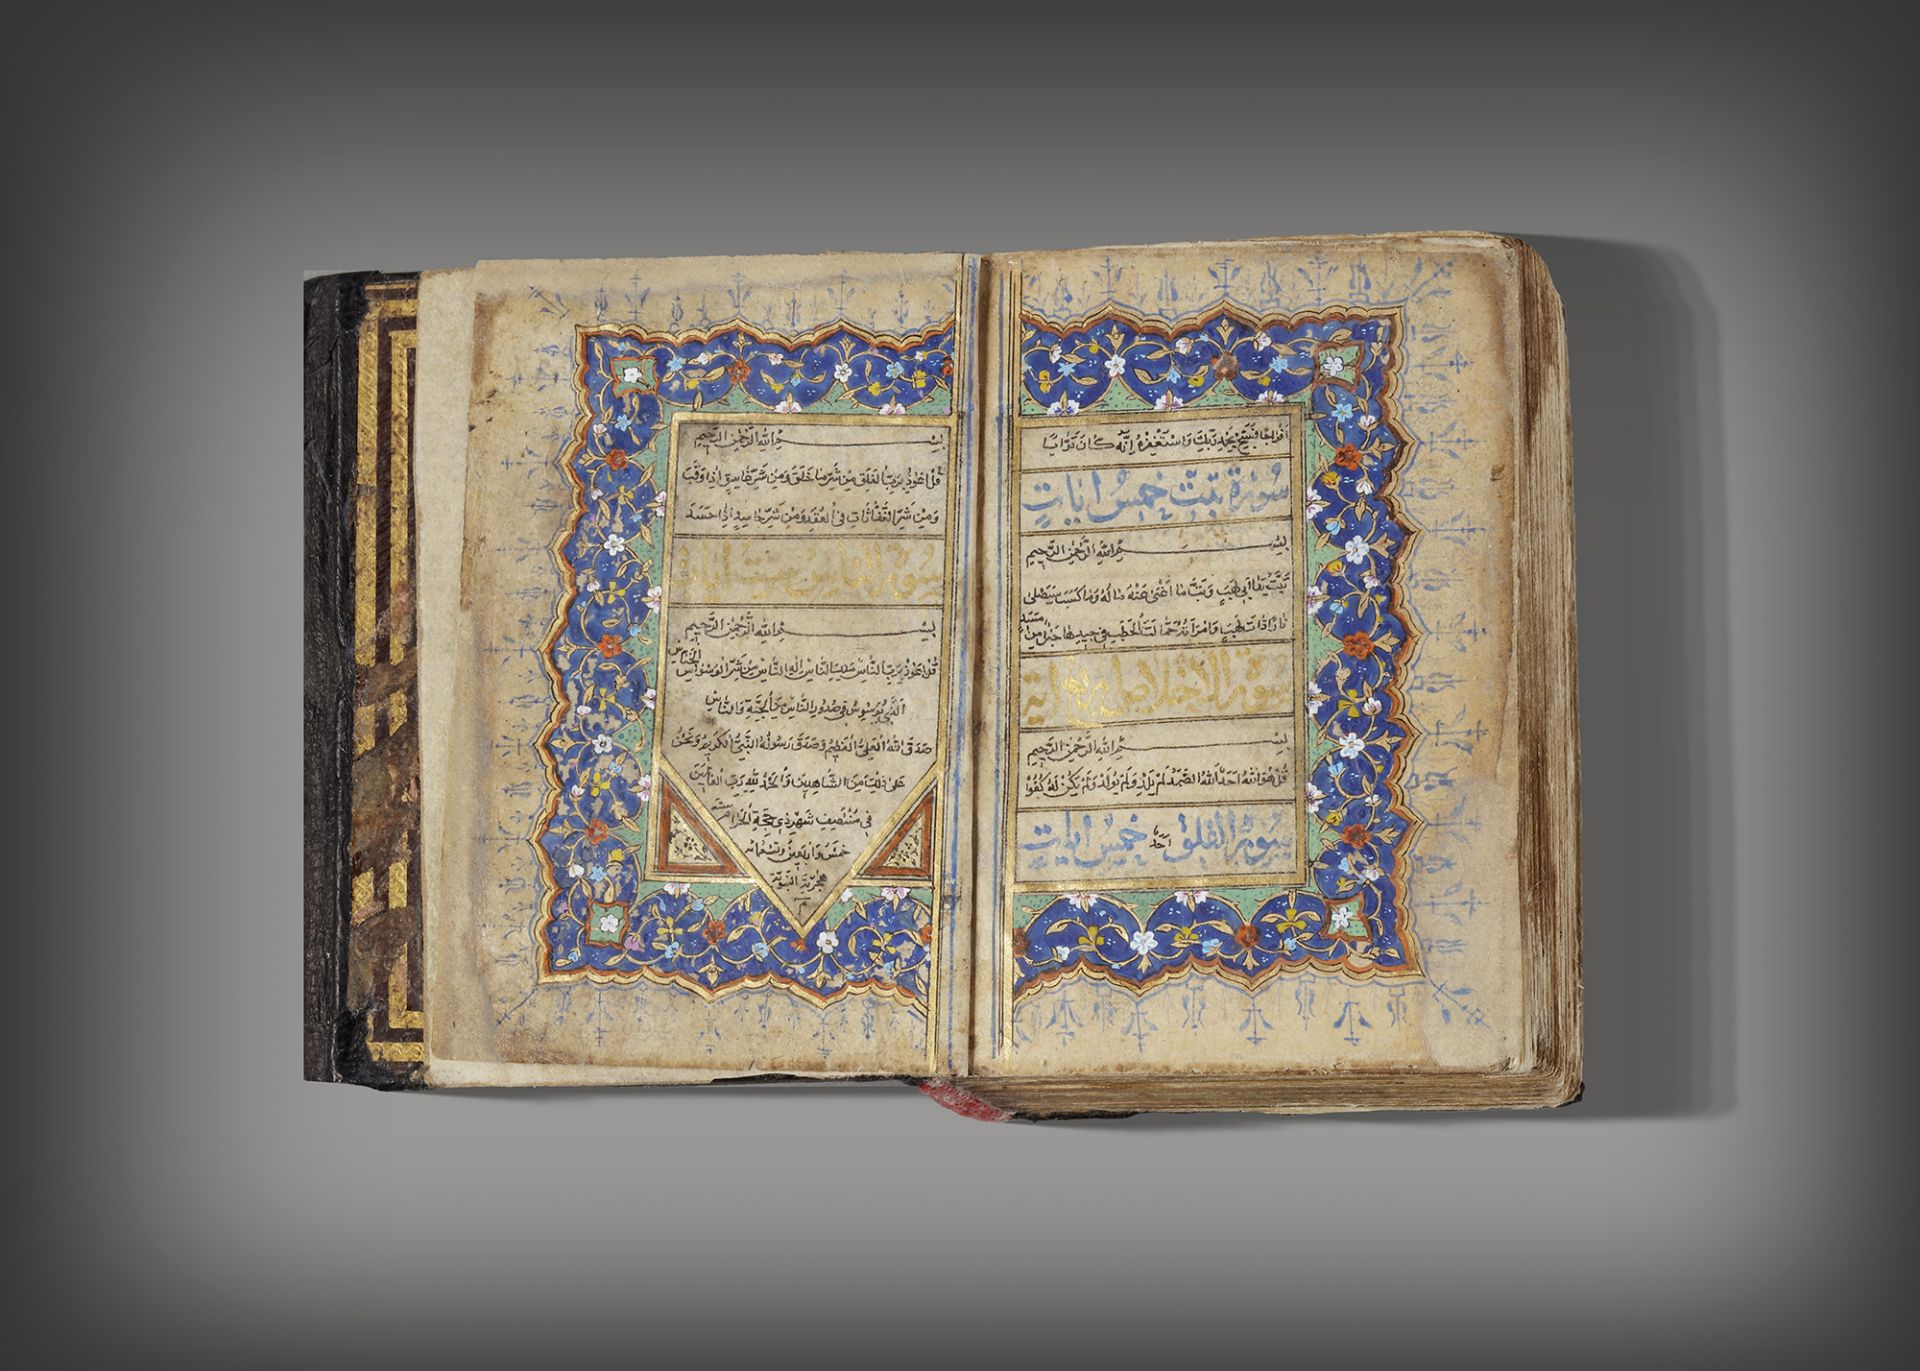 اَفْوَاجًا فَسَبِّحْ بِحَمْدِ رَبِّكَ وَاسْتَغْفِرْهُ اِنَّهُ كَانَ تَوَّابًا
سُورَةُ تَبَّتْ خَمْسُ اٰيَاتٍ
بِسْمِ اللهِ الرَّحْمٰنِ الرَّحِيمِ
تَبَّتْ يَدَا اَبِي لَهَبٍ وَتَبَّ مَا اَغْنٰى عَنْهُ مَالُهُ وَمَا كَسَبَ سَيَصْلٰى
نَارًا ذَاتَ لَهَبٍ وَامْرَاَتُهُ حَمَّالَةَ الْحَطَبِ فِي جِيدِهَا حَبْلٌ مِنْ مَسَدٍ
سورة الاخلاص اربع اية
بِسْمِ اللهِ الرَّحْمٰنِ الرَّحِيمِ
قُلْ هُوَ اللهُ اَحَدٌ اَللهُ الصَّمَدُ لَمْ يَلِدْ وَلَمْ يُولَدْ وَلَمْ يَكُنْ لَهُ كُفُوًا
اَحَدٌ
سُورَةُ الْفَلَقِ خَمْسُ اٰيَاتٍ
بِسْمِ اللهِ الرَّحْمٰنِ الرَّحِيمِ
قُلْ اَعُوذُ بِرَبِّ الْفَلَقِ مِنْ شَرِّ مَا خَلَقَ وَمِنْ شَرِّ غَاسِقٍ اِذَا وَقَبَ
وَمِنْ شَرِّ النَّفَّاثَاتِ فِي الْعُقَدِ وَمِنْ شَرِّ حَاسِدٍ اِذَا حَسَدَ
سورة الناس ست ايات
بِسْمِ اللهِ الرَّحْمٰنِ الرَّحِيمِ
قُلْ اَعُوذُ بِرَبِّ النَّاسِ مَلِكِ النَّاسِ اِلٰهِ النَّاسِ مِنْ شَرِّ الْوَسْوَاسِ الْخَنَّاسِ
اَلَّذِي يُوَسْوِسُ فِي صُدُورِ النَّاسِ مِنَ الْجِنَّةِ وَالنَّاسِ
صَدَقَ اللهُ الْعَلِيُّ الْعَظِيمُ وَصَدَقَ رَسُولُهُ النَّبِيُّ الْكَرِيمُ وَنَحْنُ
عَلٰى ذٰلِكَ مِنَ الشَّاهِدِينَ وَالْحَمْدُ لِلّٰهِ رَبِّ الْعَالَمِينَ
فِي مُنْتَصِفِ شَهْرِ ذِي حِجَّةِ الْحَرَامِ سَنَة
خَمْس وَاَرْبَعِين وَتِسْعمِائَة
هِجْرِيَّة النَّبَوِيَّة
م